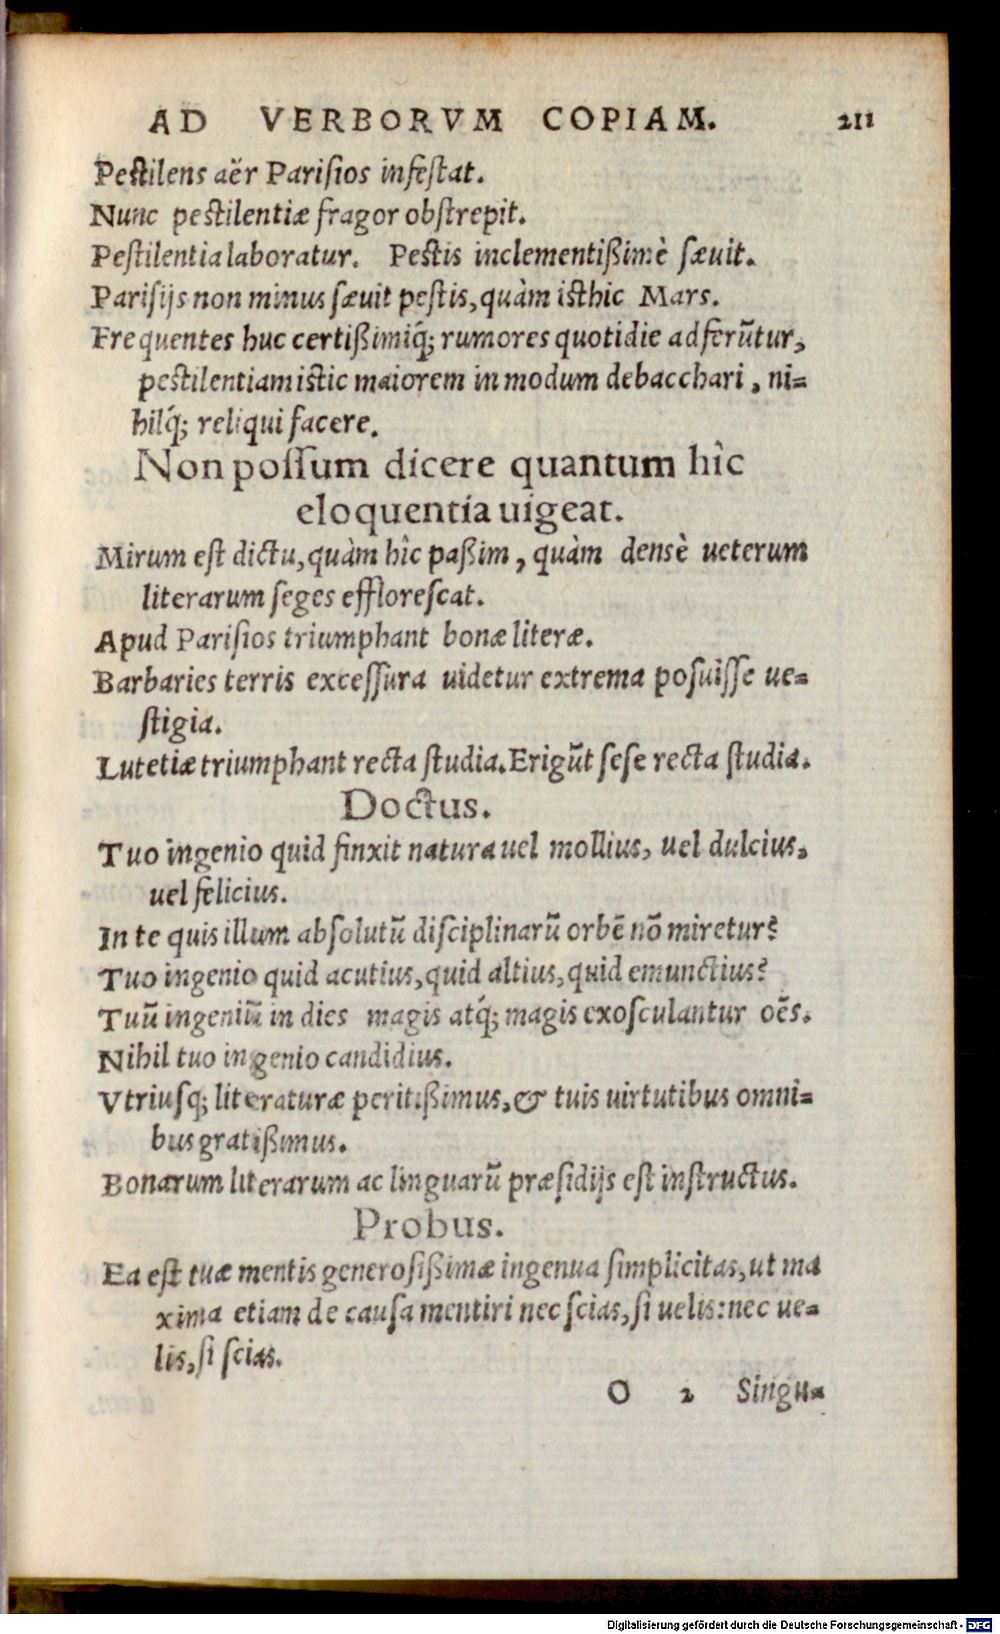 AD VERBORVM COPIAM. 211
Pestilens aër Parisios infestat.
Nunc pestilentiæ fragor obstrepit.
Pestilentia laboratur. Pestis inclementißimè sæuit.
Parisijs non minus sæuit pestis, quàm isthic Mars.
Frequentes huc certißimiq́; rumores quotidie adferũtur,
pestilentiam istic maiorem in modum debacchari, ni=
hilq́; reliqui facere.
Non possum dicere quantum hìc
eloquentia uigeat.
Mirum est dictu, quàm hîc paßim, quàm densè ueterum
literarum seges efflorescat.
Apud Parisios triumphant bonæ literæ.
Barbaries terris excessura uidetur extrema posuisse ue=
stigia.
Lutetiæ triumphant recta studia. Erigũt sese recta studia.
Doctus.
Tuo ingenio quid finxit natura uel mollius, uel dulcius,
uel felicius.
In te quis illum absolutũ disciplinarũ orbẽ nõ miretur?
Tuo ingenio quid acutius, quid altius, quid emunctius?
Tuũ ingeniũ in dies magis atq́; magis exosculantur oẽs.
Nihil tuo ingenio candidius.
Vtriusq; literaturæ peritißimus, & tuis uirtutibus omni=
bus gratißimus.
Bonarum literarum ac linguarũ præsidijs est instructus.
Probus.
Ea est tuæ mentis generosißimæ ingenua simplicitas, ut ma
xima etiam de causa mentiri nec scias, si uelis: nec ue=
lis, si scias.
O 2 Singu=
Digitalisierung gefördert durch die Deutsche Forschungsgemeinschaft - DFG